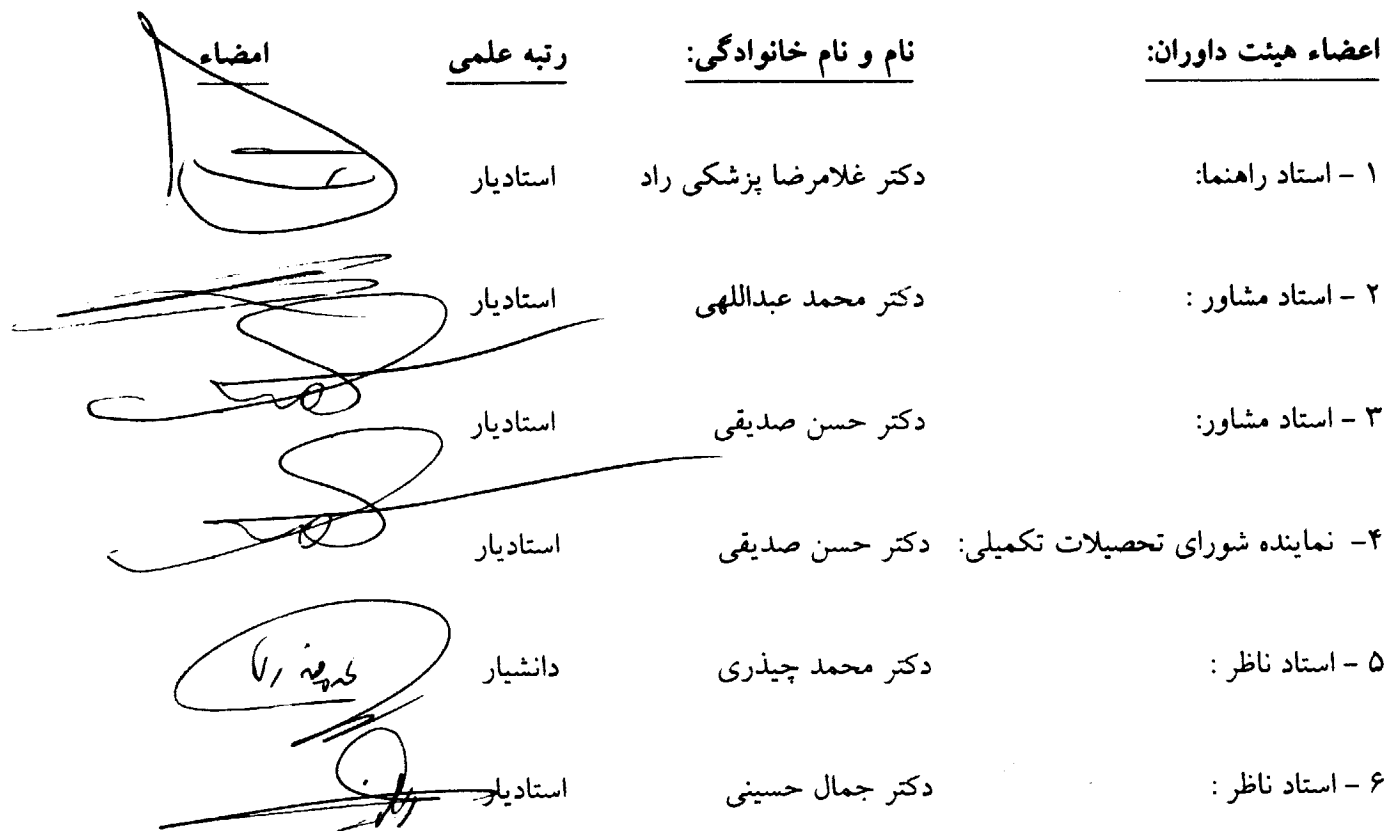 اعضاء هیئت داوران: نام و نام خانوادگی: رتبه علمی امضاء
۱ - استاد راهنما: دکتر غلامرضا پزشکی راد استادیار
۲ - استاد مشاور : دکتر محمد عبداللهی استادیار
۳ - استاد مشاور: دکتر حسن صدیقی استادیار
۴- نماینده شورای تحصیلات تکمیلی: دکتر حسن صدیقی استادیار
۵ - استاد ناظر : دکتر محمد چیذری دانشیار
۶ - استاد ناظر : دکتر جمال حسینی استادیار